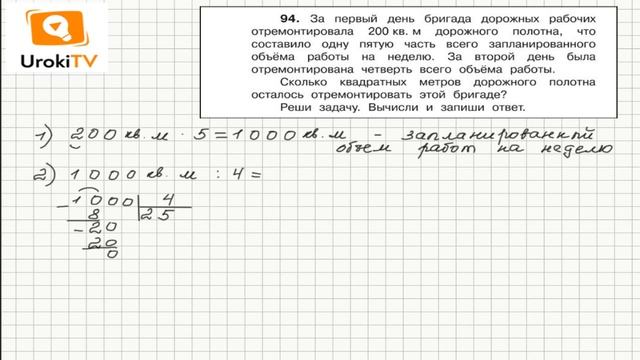 UrokiTV
94. За первый день бригада дорожных рабочих
отремонтировала 200 кв. м дорожного полотна, что
составило одну пятую часть всего запланированного
объёма работы на неделю. За второй день была
отремонтирована четверть всего объёма работы.
Сколько квадратных метров дорожного полотна
осталось отремонтировать этой бригаде?
Реши задачу. Вычисли и запиши ответ.
1) 200 кв. м · 5 = 1000 кв. м - запланированный
объем работ на неделю
2) 1000 кв. м : 4 =
- 1000 4
8 25
- 20
20
0